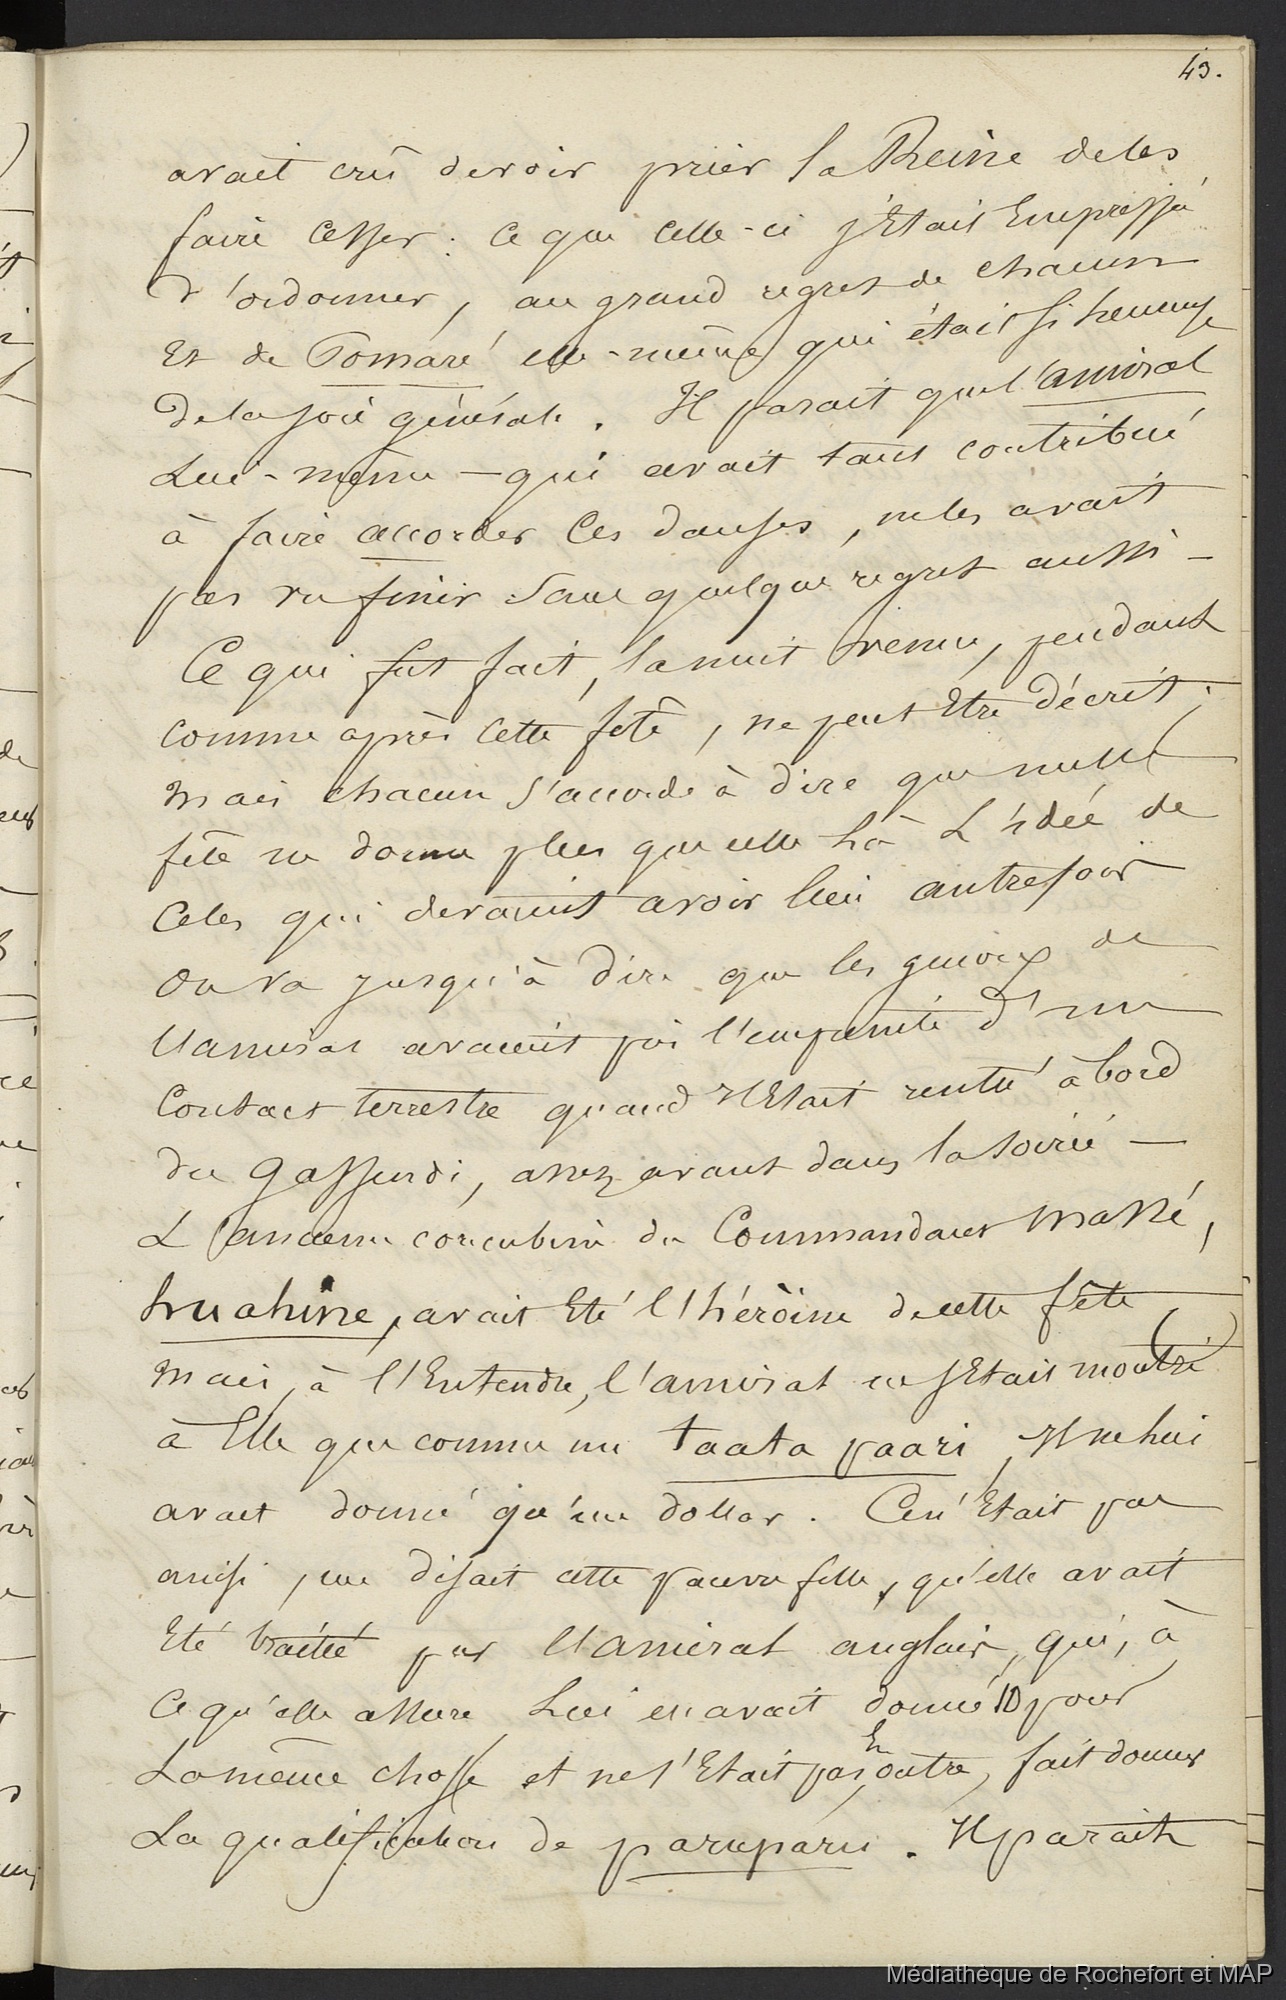 43.
avait crû devoir prier la Reine de les
faire cesser. ce que celle-ci s'était Empressée
d'ordonner, au grand regret de chacun
Et de Pomaré elle-même qui était si heureuse
de la joie générale. Il parait que l'amiral
Lui-même — qui avait tant contribué
à faire accorder Ces danses, ne les avait
pas vu finir sans quelque regret aussi —
Ce qui fut fait, la nuit venue, pendant
comme après cette fête, ne peut Etre décrit;
mais chacun s'accorde à dire que nulle
fête ne donna plus que celle là L'idée de
Celes qui devaient avoir lieu autrefois
on va jusqu'à dire que les genoux de
l'amiral avaient pris l'empreinte d'un
Contact terrestre quand il Etait rentré à bord
du Gassendi, assez avant dans la soirée —
L'ancienne concubine du Commandant Massé,
huahine, avait Eté l'héroïne de cette fête
mais, à l'Entendre, l'amiral ne s'Etait montré
à Elle que comme un taata paari, Il ne lui
avait donné qu'un dollar. Ce n'Etait pas
ainsi, me disait cette pauvre fille, qu'elle avait
Eté traitée par l'amiral anglais, qui, à
Ce qu'elle assure Lui en avait donné 10 pour
La même chose et ne s'Etait pas, En outre, fait donner
La qualification de paruparu. Il parait
Médiathèque de Rochefort et MAP